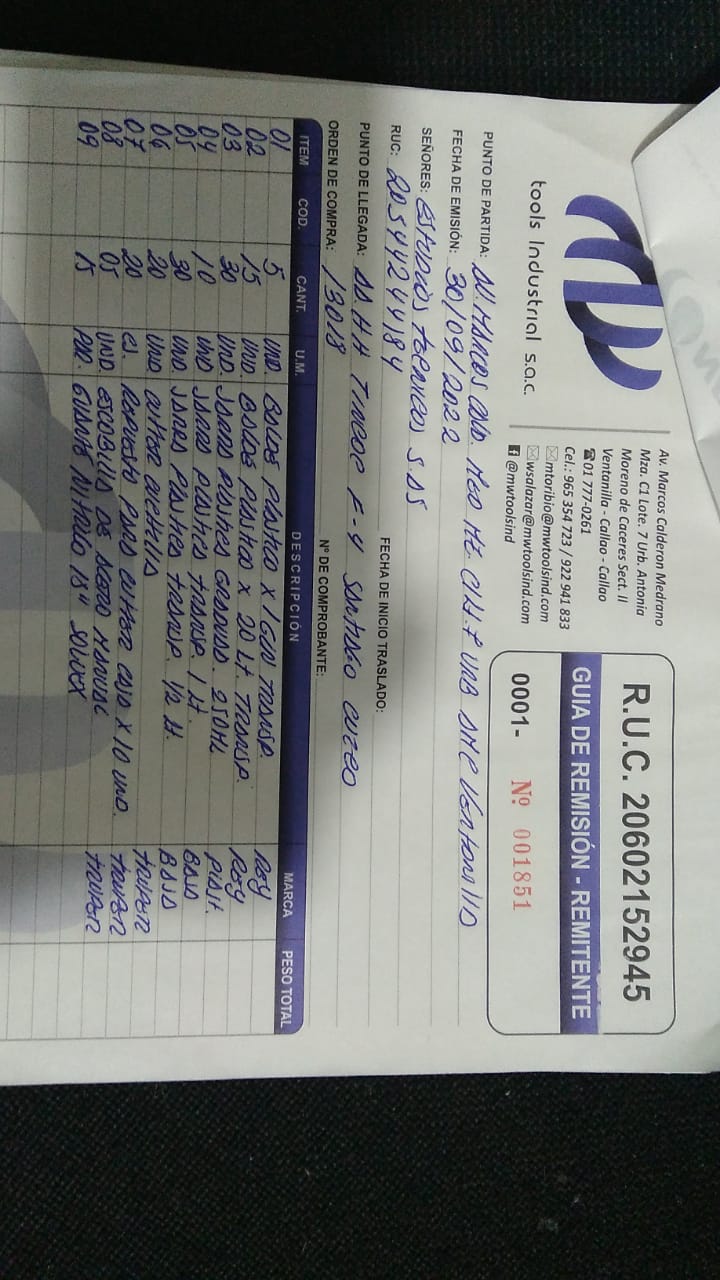 mw
tools Industrial s.a.c.
Av. Marcos Calderon Medrano
Mza. C1 Lote. 7 Urb. Antonia
Moreno de Caceres Sect. II
Ventanilla - Callao - Callao
01 777-0261
Cel.: 965 354 723 / 922 941 833
mtoribio@mwtoolsind.com
wsalazar@mwtoolsind.com
@mwtoolsind
R.U.C. 20602152945
GUIA DE REMISIÓN - REMITENTE
0001- Nº 001851
PUNTO DE PARTIDA: AV. MARCOS MED MZ URB Ventanilla
FECHA DE EMISIÓN: 30/09/2022
SEÑORES: ESTUDIOS TECNICOS S.A.S
RUC: 20544244184 FECHA DE INICIO TRASLADO:
PUNTO DE LLEGADA: AA.HH TINCOP F-4 SANTIAGO CUZCO
ORDEN DE COMPRA: 13018 N° DE COMPROBANTE:
ITEM COD. CANT. U.M. DESCRIPCIÓN MARCA PESO TOTAL
01 5 UND. BALDE PLASTICO X 1 GLN TRANSP. REY
02 15 UND. BALDE PLASTICO X 20 Lt. TRANSP. REY
03 30 UND. JARRA PLASTICA GRADUADA 250ML PLAST.
04 10 UND JARRA PLASTICA TRANSP. 1 Lt. BASA
05 30 UND. JARRA PLASTICA TRANSP. 1/2 Lt. BASA
06 20 UND CUTTER CUCHILLA TRUPER
07 20 CJ. REPUESTO PARA CUTTER CAJA X 10 UND. TRUPER
08 05 UND ESCOBILLA DE ACERO MANUAL TRUPER
09 15 PAR. GUANTE NITRILO 18" SOLVEX